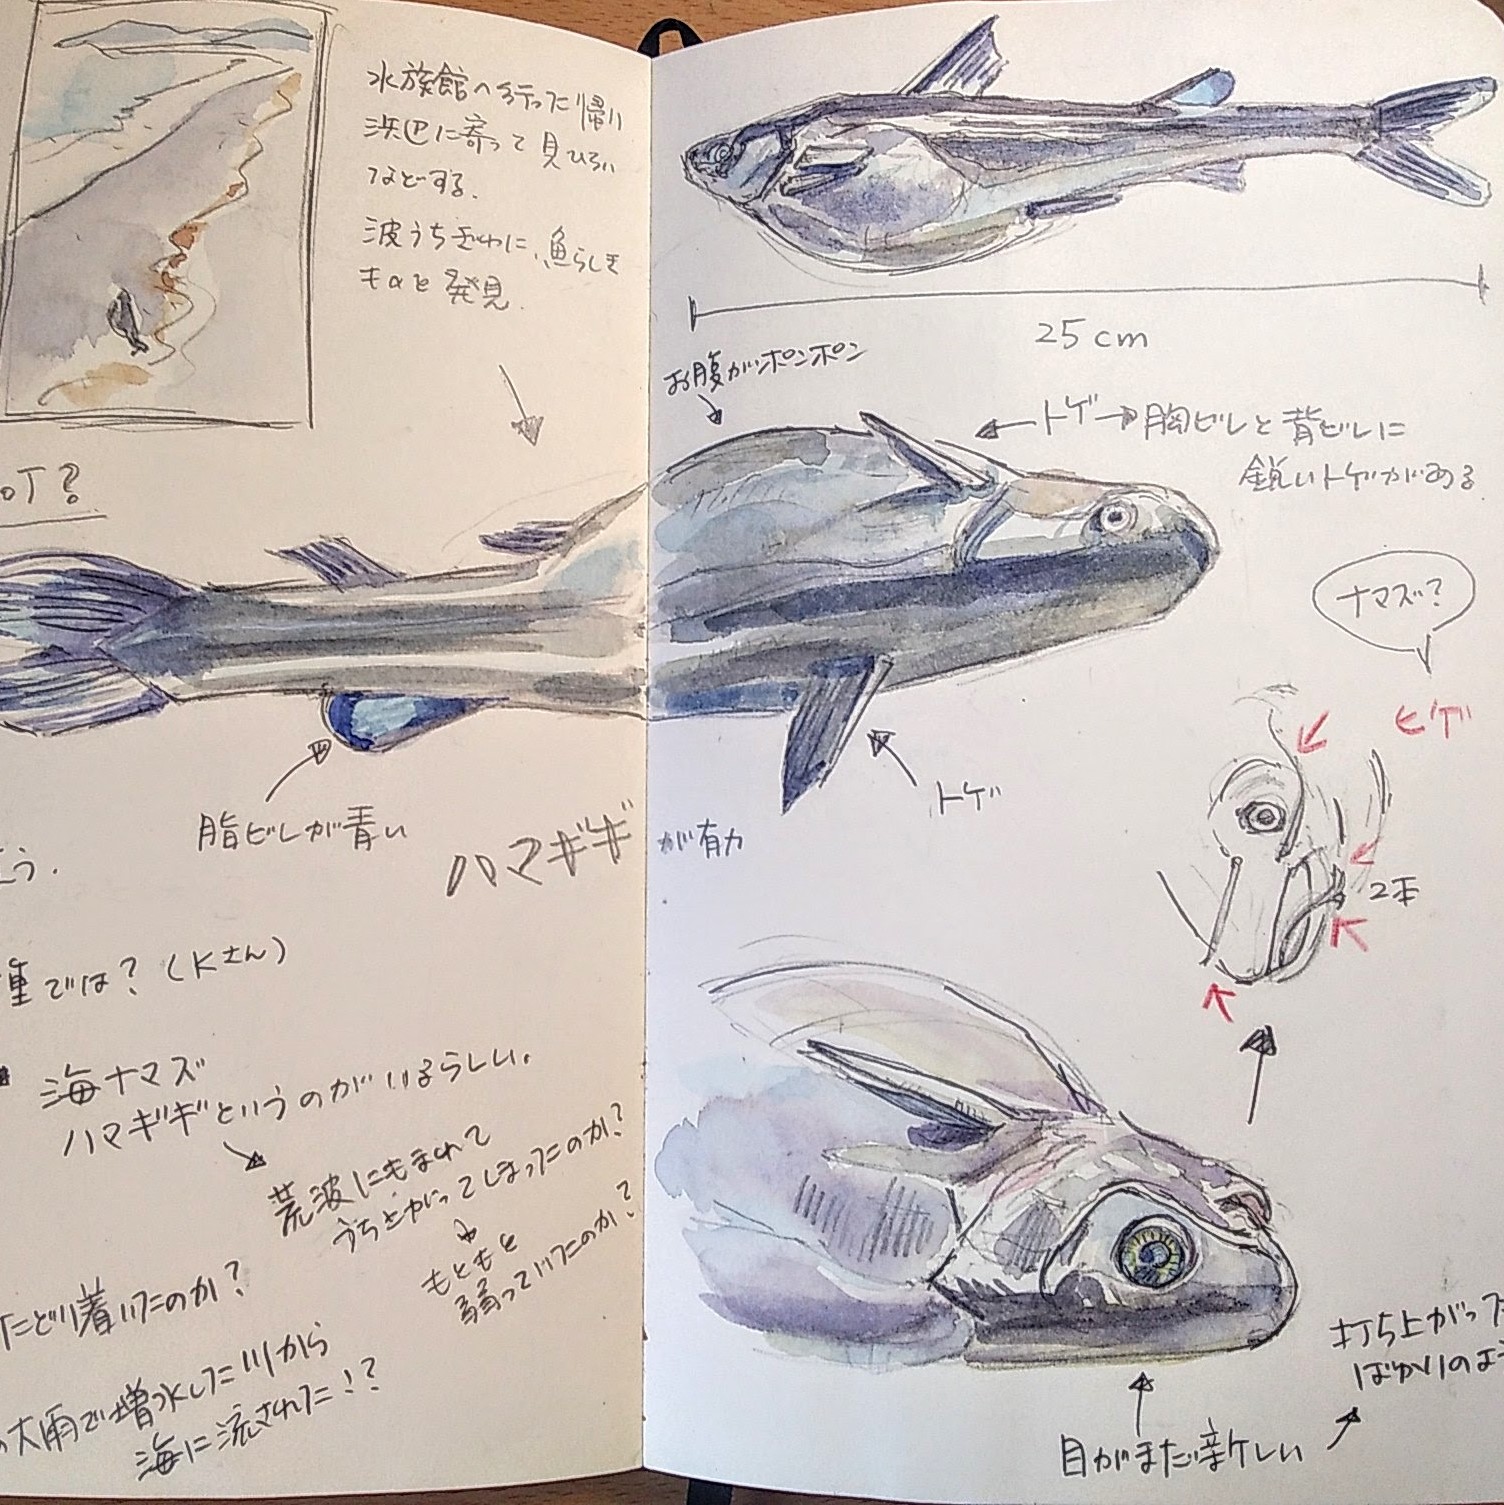 水族館へ行った帰り
浜辺に寄って見ひろい
などする.
波うちぎわに、魚らしき
ものを発見.
?
脂ビレが青い
ハマギギが有力
う.
種では?(Kさん)
海ナマズ
ハマギギというのがいるらしい.
荒波にもまれて
うちあがってしまったのか?
もともと
弱っていたのか?
たどり着いたのか?
の大雨で増水した川から
海に流された!?
25cm
お腹がポンポン
トゲ→胸ビレと背ビレに
鋭いトゲがある
ナマズ?
ヒゲ
2本
トゲ
打ち上がった
ばかりのよう
目がまだ新しい